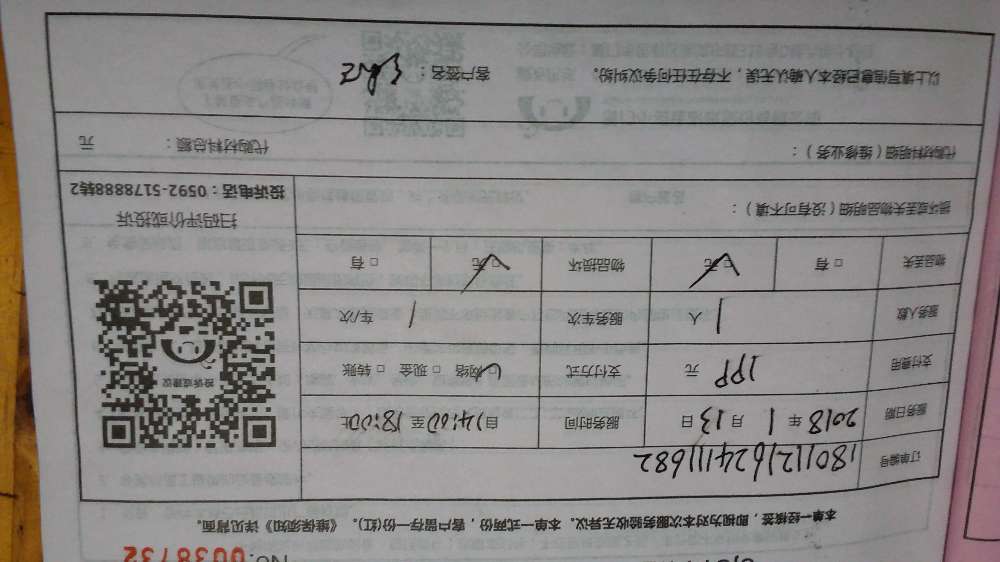 No:0038732
本单一经核签，即视为对本次服务验收无异议。本单一式两份，客户留存一份(红)。《维保须知》详见背面。
订单编号 1801121624111682
服务日期 2018年1月13日 服务时间 自14:00至18:00止
支付费用 199元 支付方式 □网络 □现金 □转账
服务人数 1人 服务车次 1车/次
物品丢失 □有 □无 物品损坏 □无 □有
损坏或丢失物品明细（没有可不填）：
投诉或建议
扫码评价或投诉
投诉电话：0592-5178888转2
代购材料明细（维修业务）： 代购材料总额： 元
以上填写信息已经本人确认无误，不存在任何争议纠纷。 客户签名：